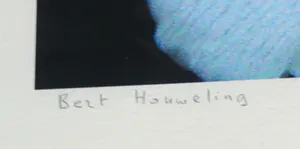 Bert Houweling